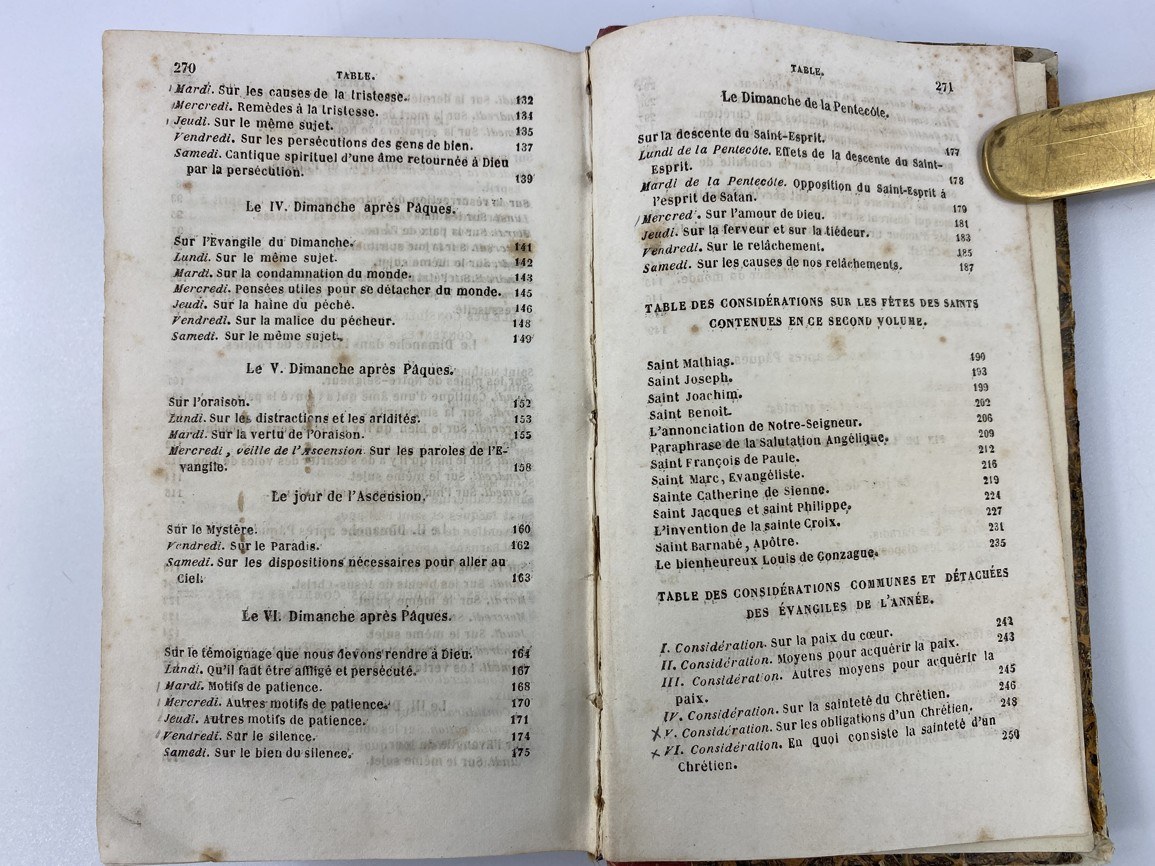 270
TABLE.
Mardi. Sur les causes de la tristesse. 132
Mercredi. Remèdes à la tristesse. 134
Jeudi. Sur le même sujet. 135
Vendredi. Sur les persécutions des gens de bien. 137
Samedi. Cantique spirituel d'une âme retournée à Dieu
par la persécution. 139
Le IV. Dimanche après Pâques.
Sur l'Evangile du Dimanche. 141
Lundi. Sur le même sujet. 142
Mardi. Sur la condamnation du monde. 143
Mercredi. Pensées utiles pour se détacher du monde. 145
Jeudi. Sur la haine du péché. 146
Vendredi. Sur la malice du pécheur. 148
Samedi. Sur le même sujet. 149
Le V. Dimanche après Pâques.
Sur l'oraison. 152
Lundi. Sur les distractions et les aridités. 153
Mardi. Sur la vertu de l'Oraison. 155
Mercredi, veille de l'Ascension. Sur les paroles de l'E-
vangile. 158
Le jour de l'Ascension.
Sur le Mystère. 160
Vendredi. Sur le Paradis. 162
Samedi. Sur les dispositions nécessaires pour aller au
Ciel. 163
Le VI. Dimanche après Pâques.
Sur le témoignage que nous devons rendre à Dieu. 164
Lundi. Qu'il faut être affligé et persécuté. 167
Mardi. Motifs de patience. 168
Mercredi. Autres motifs de patience. 170
Jeudi. Autres motifs de patience. 171
Vendredi. Sur le silence. 174
Samedi. Sur le bien du silence. 175
TABLE.
271
Le Dimanche de la Pentecôte.
Sur la descente du Saint-Esprit. 177
Lundi de la Pentecôte. Effets de la descente du Saint-
Esprit. 178
Mardi de la Pentecôte. Opposition du Saint-Esprit à
l'esprit de Satan. 179
Mercred. Sur l'amour de Dieu. 181
Jeudi. Sur la ferveur et sur la tiédeur. 183
Vendredi. Sur le relâchement. 185
Samedi. Sur les causes de nos relâchements. 187
TABLE DES CONSIDÉRATIONS SUR LES FÊTES DES SAINTS
CONTENUES EN CE SECOND VOLUME.
Saint Mathias. 190
Saint Joseph. 193
Saint Joachim. 199
Saint Benoit. 202
L'annonciation de Notre-Seigneur. 206
Paraphrase de la Salutation Angélique. 209
Saint François de Paule. 212
Saint Marc, Evangéliste. 216
Sainte Catherine de Sienne. 219
Saint Jacques et saint Philippe. 224
L'invention de la sainte Croix. 227
Saint Barnabé, Apôtre. 231
Le bienheureux Louis de Gonzague. 235
TABLE DES CONSIDÉRATIONS COMMUNES ET DÉTACHÉES
DES ÉVANGILES DE L'ANNÉE.
I. Considération. Sur la paix du cœur. 242
II. Considération. Moyens pour acquérir la paix. 243
III. Considération. Autres moyens pour acquérir la
paix. 245
IV. Considération. Sur la sainteté du Chrétien. 246
V. Considération. Sur les obligations d'un Chrétien. 248
VI. Considération. En quoi consiste la sainteté d'un
Chrétien. 250